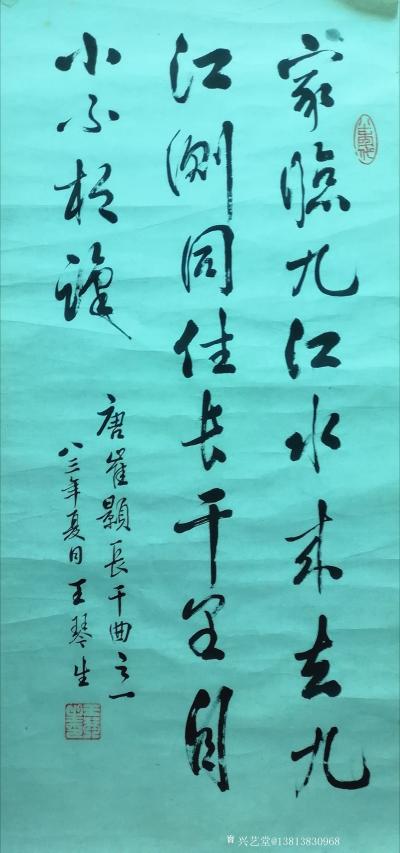 家臨九江水来去九
江側同住長干里自
小不相識
唐崔顥長干曲之一
八三年夏日王琴生
兴艺堂@13813830968